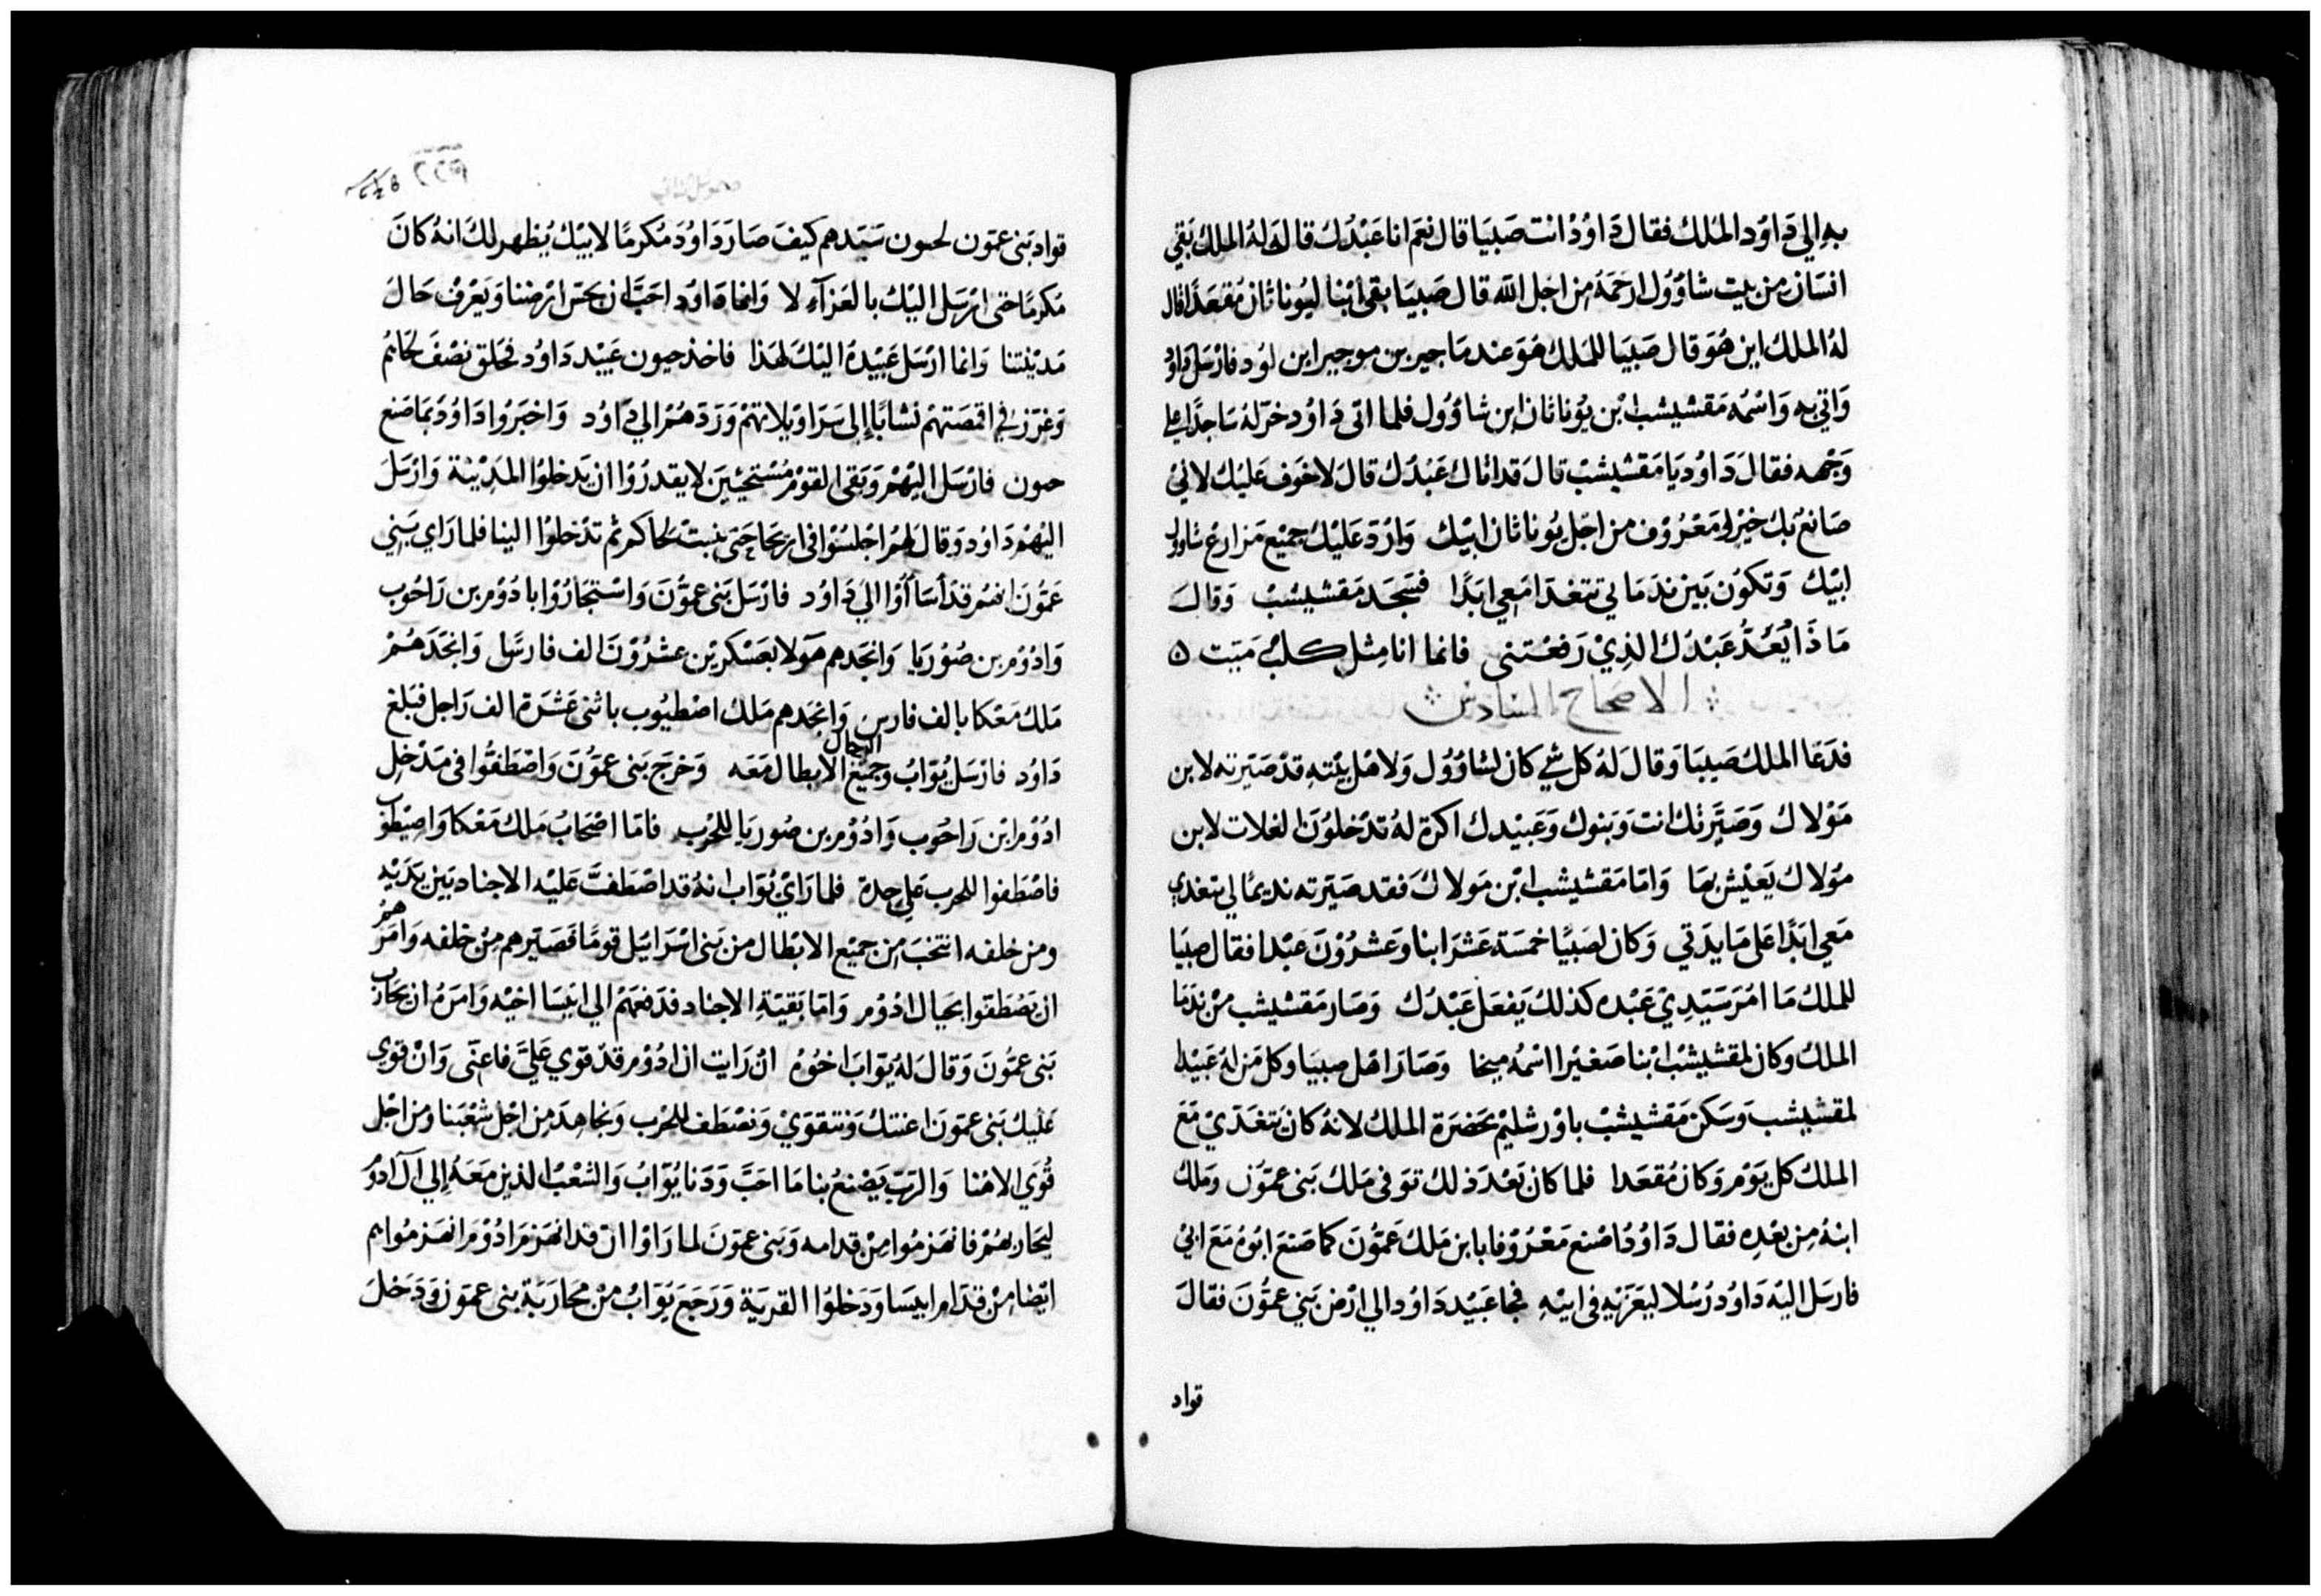 به الي دَاوُد المَلك فقال دَاوُدْ انت صَبيَا قال نعَم انا عَبْدُك قال لهُ الملك بَقي
انسَان من بيت شاوُوُل ارحَمَهُ من اجل الله قال صَبيَا بقي ابْنا ليُوناثان مُقعَدًا قال
لهُ الملك اين هُوَ قال صَبَيا للمَلك هُوَ عند مَاجير بن موجير ابن لوُد فارْسَل دَاوُد
وَاتي به وَاسْمُه مَقشيشب ابْن يوُناثان ابن شاوُوُل فلما اتى دَاوُد خرّ لهُ سَاجدًا علي
وَجهه فقالَ دَاوُد يَا مَقشيشبْ قال قد اتاك عَبْدُك قالَ لا خوَف عَليْك لانيْ
صَانعٌ بك خيْر ومَعْرُوْف من اجل يوُناثان ابيْك وَارُدّ عَليْك جميْع مَزارع شاوول
ابيْك وَتكوُن بَين ندَمَاتي تتغدَا مَعي ابَدًا فسَجَد مَقشيشبْ وَقالَ
مَاذَا يُعَدُّ عَبْدُك الذيْ رَفعْتني فانما انا مثل كلبْ مَيّت ٥
الاصحاح السادس
فدَعَا الملك صَيبَا وَقال لهُ كل شي كان لشاوُوُل وَلاهْل بَيْته قدْ صَيّرته لابن
مَوْلاك وَصَيَّرتك انت وَبَنوك وَعَبيْدك اكرة لهُ تدْخلوُن الغلات لابن
مَوْلاك يَعيْش بهَا وَامّا مَقشيشب ابْن مَولاكَ فقد صَيّرته نديمًا لي يتغدي
مَعي ابَدًا عَلى مَايدَتي وَكان لصَبيًا خمسَة عَشَرَ ابنا وعَشرُوْن عَبْدا فقال صبيَا
للملك مَا امَرَ سَيّديْ عَبْده كذلك يَفعَل عَبْدُك وَصَار مَقشيشب منْ ندَمَا
الملك وكان لمقشيشبْ ابْنا صَغيْرا اسْمُه ميخا وَصَارَ اهْل صبيَا وكل مَن لهُ عَبيْدا
لمقشيشب وَسَكن مَقشيشبْ باوْرشليْم بحَضرَة الملك لانهُ كان يَتغدّيْ مَعَ
الملك كل يَوْم وَكان مُقعَدا فلما كان بَعْد ذلك توَفى مَلك بَنى عمّوُن وَملك
ابنهُ من بعْدِه فقال دَاوُدُ اصْنع مَعْرُوْفا بابن مَلك عَمُّوْنَ كما صَنعَ ابُوهُ مَعَ ابيْ
فارسَل اليْه دَاوُد رُسُلا ليُعَزّيْه في ابيْه فجا عَبيْد دَاوُد الي ارْض بَني عمُّونَ فقالَ
قواد
قواد بَنى عمّون لحنون سَيّدهم كيْفَ صَارَ دَاوُدَ مُكرمًا لابيْك يُظهر لكَ انهُ كانَ
مُكرمًا حتى ارْسَل اليْك بالعَزاءِ لا وَانما دَاوُد احَبَّ ان يجسّ ارْضنا وَيَعْرفْ حَالَ
مَديْنتنا وَانما ارْسَل عَبيْدهُ اليْكَ لهَذا فاخذ حنون عَبيْد دَاوُد فحَلق نصْفَ لحَاتهم
وَخرَزَ في اقمصَتهمْ نشابًا إلى سَرَاويلاتهمْ وَرَدّهُمْ الي دَاوُد وَاخبَرُوا دَاوُدَ بمَا صَنع
حنون فارْسَل اليْهمْ وَبَقى القوْم مُسْتحيْين لا يقدرُوْا ان يَدخلوْا المَديْنة وَارْسَلَ
اليْهمْ دَاوُد وَقال لهمْ اجْلسُوْا في اريحَا حَتى ينبتْ لحَاكم ثم تدْخلوْا الينا فلما رَاي بَني
عَمُّوْن انهُمْ قدْ أسَاأوُا الي دَاوُد فارْسَل بَنى عمُّوْنَ وَاسْتجَارُوْا بادُوْم بن رَاحُوب
وَادُوْم بن صُوْريَا وَانجدهم هَولا بعَسْكرَيْن عشرُوْنَ الف فارسًا وَانجدَهُمْ
مَلك مَعْكا بالف فارس وَانجَدهم مَلك اصْطيُوب باثنى عَشَرَة الف رَاجل فبَلغ
دَاوُد فارْسَل يُوَابُ وَجميْع الرجال الابطال مَعَه وَخرَجَ بَنى عَمُّوْنَ وَاصْطفُّوا في مَدْخل
ادُوْم ابْن رَاحُوب وَادُوْم بن صُوريَا للحَرْب فامّا اصْحَابُ مَلك مَعْكا وَاصيْطوب
فاصْطفوا للحرب عَلي حدة فلما رَايْ يُوَاب انهُ قد اصْطفتَّ عَليْه الاجناد بَين يَدَيْه
ومن خلفه انتخبَ من جميْع الابْطال من بَنى اسْرَائيْل قومًا فصَيَّرهم منْ خلفه وَامَرَهمُ
ان يَصْطفوا بحيَال ادُوْم وَامّا بَقيّةِ الاجناد فدَفعَهُمْ الي ابيسَا اخيْه وَامَرَهُ ان يحَارب
بَنى عمُّونَ وَقالَ لهُ يُوَابَ اخوُهُ انْ رَايت ان ادُوْم قدْ قوي عَليَّ فاعنّى وَانْ قوي
عَليك بَنى عمّون اعَنتك وَنتقوَيْ وَنصْطف للحَرْب وَنجَاهِدَ من اجْل شَعْبَنا ومن اجْل
قُرَي الاهُنا وَالرَبّ يَصْنعُ بنا مَا احَبَّ وَدَنا يُوّابُ وَالشعْبُ الذين مَعَهُ إلى آل ادُوْم
ليحَاربهُمْ فانهزمُوا منْ قدامه وَبَنى عمّونَ لما رَاوْا انْ قد انهَزمَ ادُوْم انهَزمُوا هم
ايْضا منْ قدّام ابيسَا وَدَخلوْا القريَة وَرَجَعَ يُوّابُ منْ محَارَبَة بنى عمّون وَدَخلَ